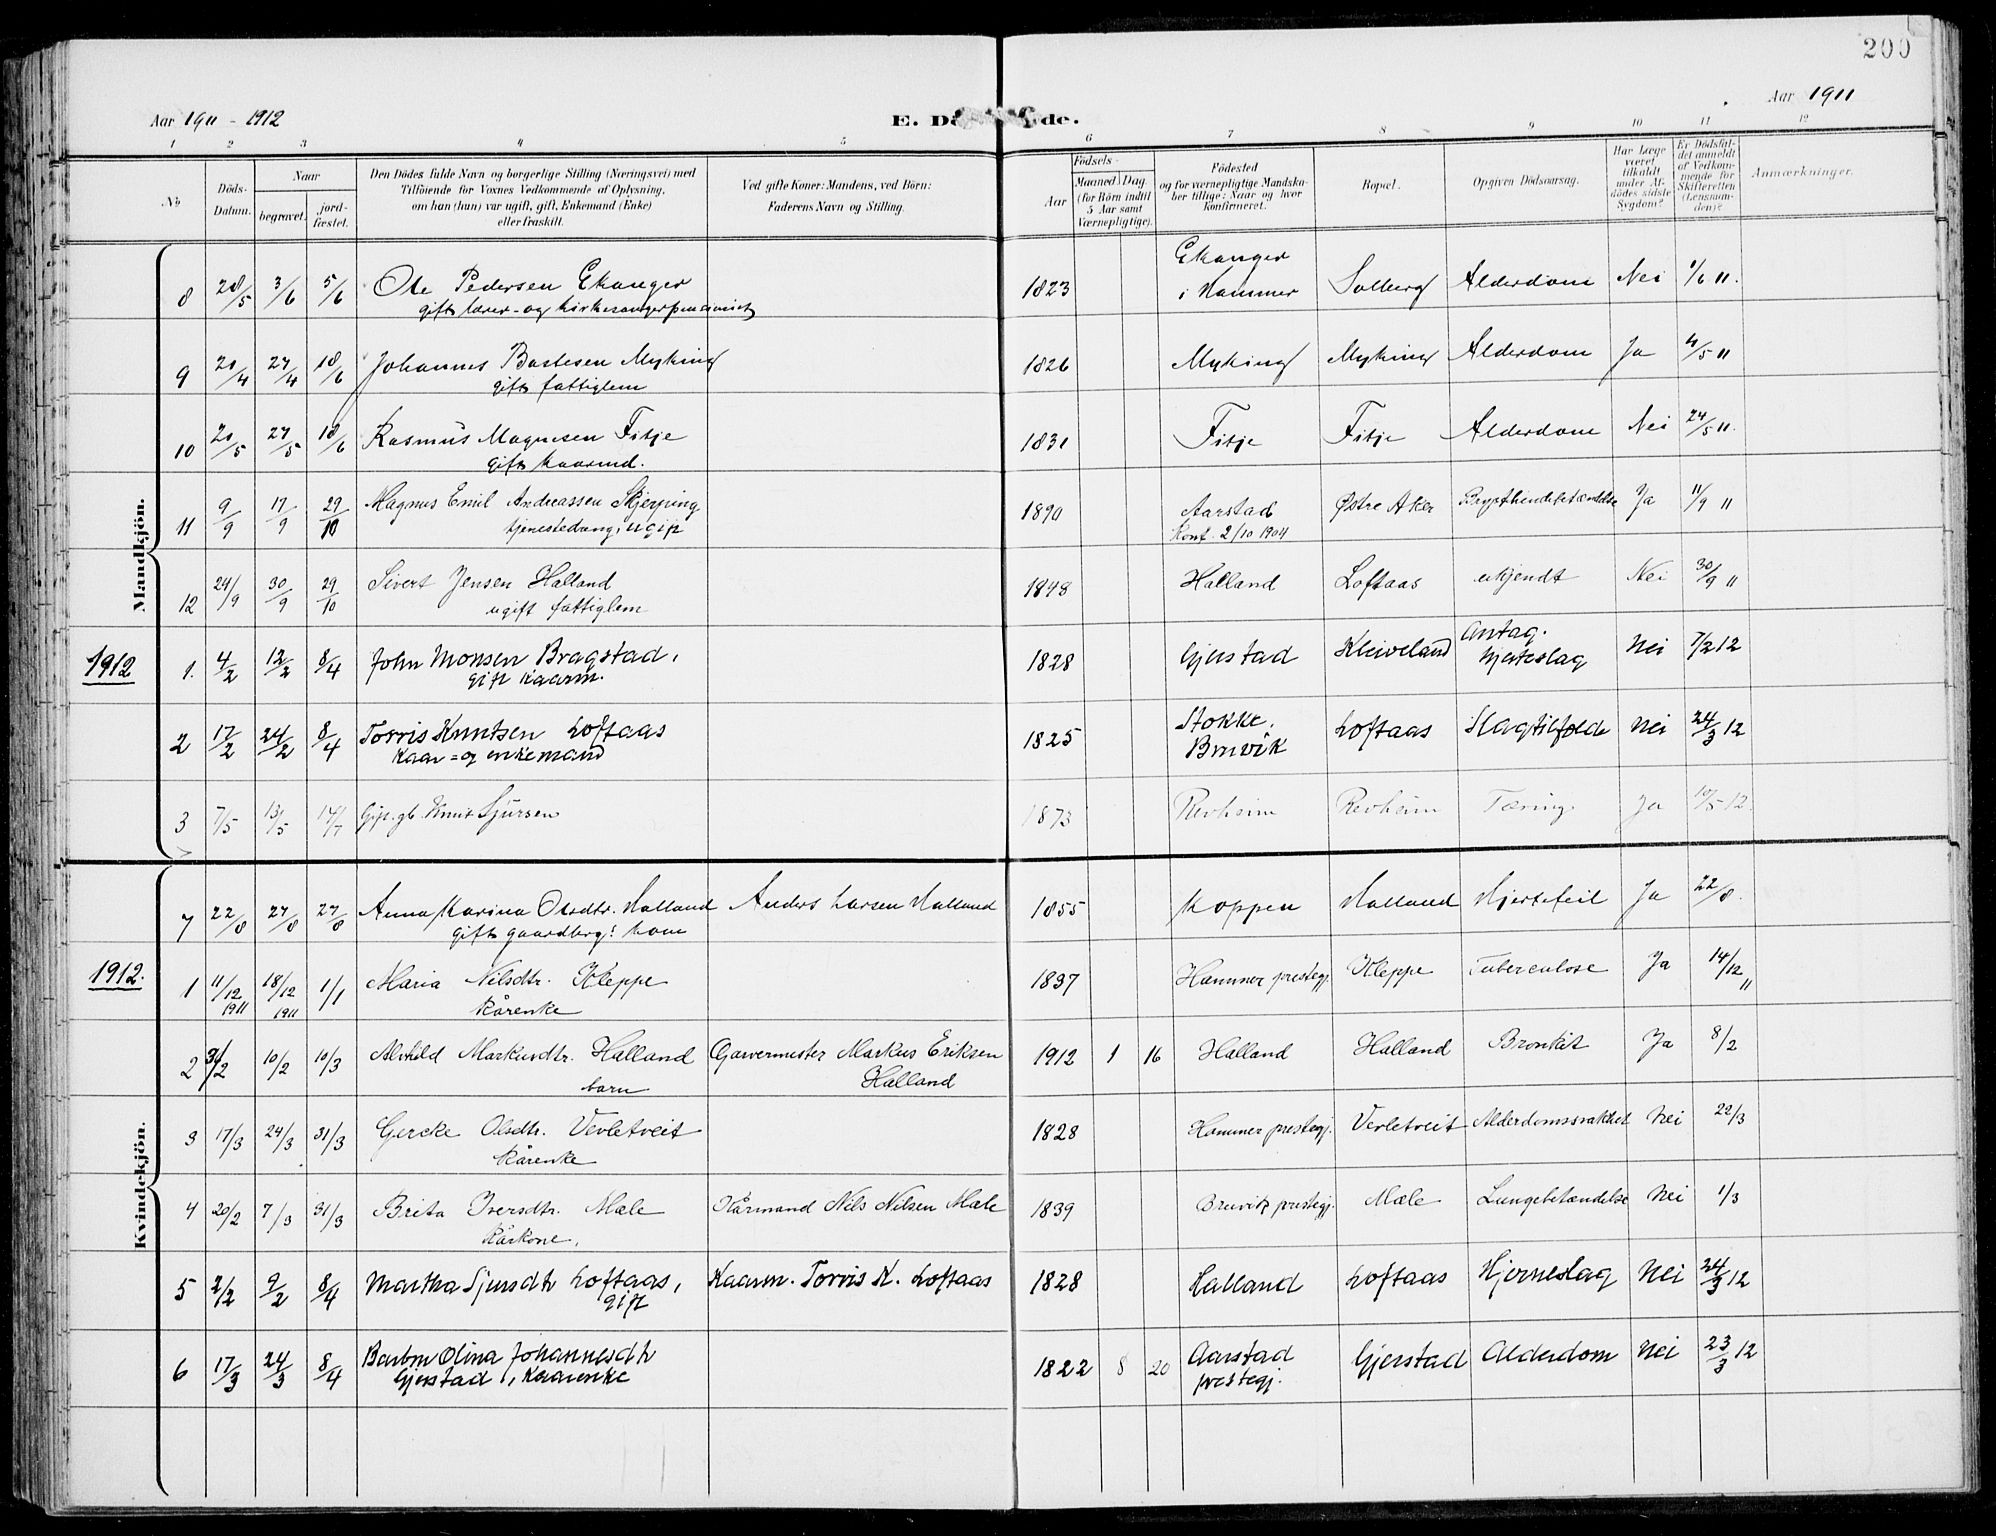 200
Aar 1911 - 1912
E. Dö de.
Aar 1911
1 2 3 4 5 6 7 8 9 10 11 12
No
Döds-Datum.
Naar
begravet.
jord-fæstet.
Den Dödes fulde Navn og borgerlige Stilling (Næringsvei) med
Tilföiende for Voxnes Vedkommende af Oplysning,
om han (hun) var ugift, gift, Enkemand (Enke)
eller fraskilt.
Ved gifte Koner: Mandens, ved Börn:
Faderens Navn og Stilling.
Födsels-
Aar
Maaned Dag
(for Börn indtil
5 Aar samt
Værnepligtige).
Födested
og for værnepligtige Mandska-
ber tillige: Naar og hvor
konfirmeret.
Bopæl.
Opgiven Dödsaarsag.
Har Læge
været
tilkaldt
under Af-
dödes sidste
Sygdom?
Er Dödsfal-
det anmeldt
af Vedkom-
mende for
Skifteretten
(Lensman-
den)?
Anmærkninger.
Mandkjön.
8 28/5 3/6 5/6 Ole Pedersen Ekanger 1823 Ekanger i Hammer Solberg Alderdom Nei 1/6 11.
gift lærer- og kirkesangerpensionist
9 20/4 27/4 18/6 Johannes Bastesen Myking 1826 Myking Myking Alderdom Ja 4/5 11
gift fattiglem
10 20/5 27/5 18/6 Rasmus Magnesen Fitje 1831 Fitje Fitje Alderdom Nei 24/5 11.
gift kaarmd.
11 9/9 17/9 29/10 Magnus Emil Andreassen Skjerping 1890 Aarstad Østre Aker Ja 11/9 11
tjenestedreng, ugift Konf. 2/10 1904
12 24/9 30/9 29/10 Sivert Jensen Halland 1848 Halland Loftaas ukjendt Nei 30/9 11
ugift fattiglem
1912 1. 4/2 12/2 8/4 John Monsen Bragstad, 1828 Gjerstad Kleiveland Antag. hjerteslag Nei 7/2 12
gift kaarm.
2 17/2 24/2 8/4 Torris Knutsen Loftaas 1825 Stokke, Bruvik Loftaas Slagtilfælde Nei 24/3 12
Kaar= og enkemand
3 7/5 13/5 14/7 Gift. gb. Knut Sjursen 1873 Revheim Revheim Tæring Ja 10/5 12.
Kvindekjön.
7 22/8 27/8 27/8 Anna Karina Olsdtr. Halland Anders Larsen Halland 1855 Koppen Halland Hjertefeil Ja 22/8.
gift gaardbrgs kone
1912. 1 11/12 1911 18/12 1911 1/1 Maria Nilsdtr. Kleppe 1837 Hammer prestegj. Kleppe Tuberculose Ja 14/12 11
Kårenke
2 10/2 10/3 Alvhild Markusdtr. Halland Garvermester Markus Eriksen 1912 1 16 Halland Halland Bronkit Ja 8/2
barn Halland
3 17/3 24/3 31/3 Gercke Olsdtr. Vevletveit 1828 Hammer prestegj. Vevletveit Alderdomssvakhet Nei 22/3
Kårenke
4 20/2 7/3 31/3 Brita Iversdtr. Mæle Kårmand Nils Nilsen Mæle 1839 Bruvik prestegj. Mæle Lungebetændelse Nei 1/3
Kårkone,
5 2/2 9/2 8/4 Martha Sjursdtr Loftaas, Kaarm. Torris K. Loftaas 1828 Halland Loftaas Hjerneslag Nei 24/3 12
gift
6 17/3 24/3 8/4 Barbra Olina Johannesdtr 1822 8 20 Aarstad prestegj. Gjerstad Alderdom Nei 23/3 12
Gjerstad, Kaarenke